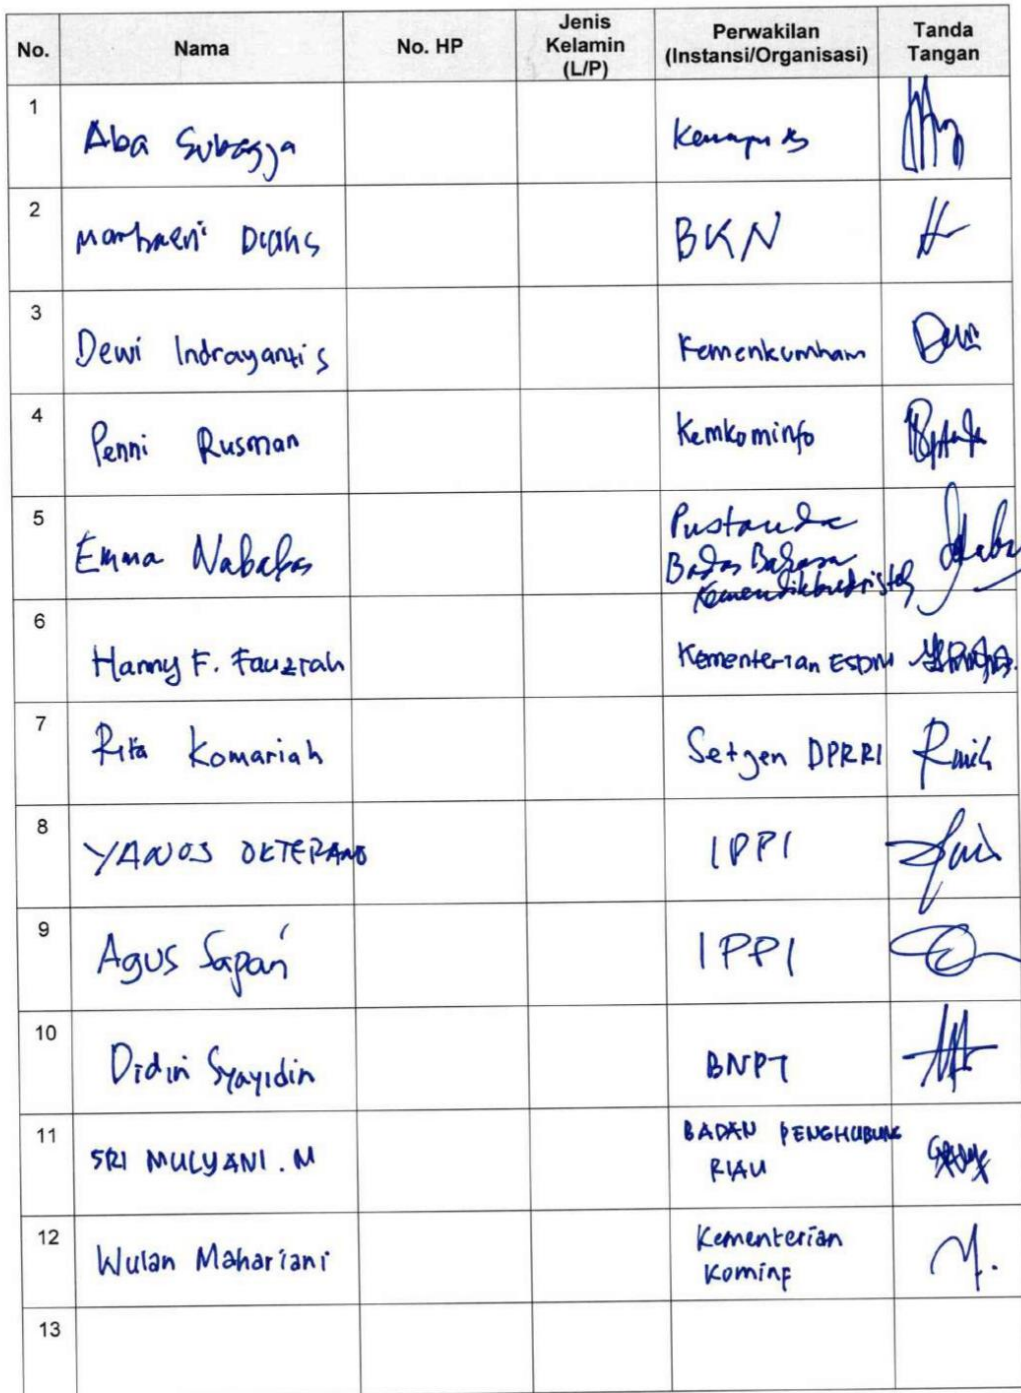 No. Nama No. HP Jenis Kelamin (L/P) Perwakilan (Instansi/Organisasi) Tanda Tangan
1 Aba Subagja
2 BKN
3 Dewi Indrayanti S Kemenkumham Dewi
4 Penni Rusman Kemkominfo
5 Emma Nababan Pustanda
Badan Bahasa
Kemendikbudristek
6 Hanny F. Fauziah Kementerian ESDM
7 Rita Komariah Setgen DPRRI
8 YANOS OKTERANO IPPI
9 Agus Sapari IPPI
10 Didin Syayidin BNPT
11 SRI MULYANI . M BADAN PENGHUBUNG
RIAU
12 Wulan Mahariani Kementerian
Kominf
13